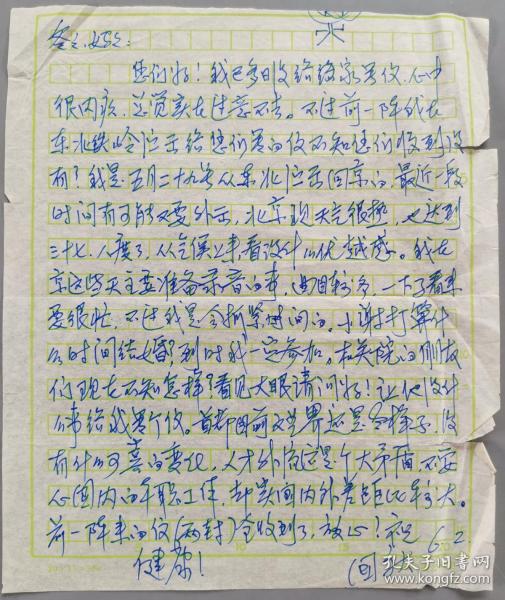 爸爸、妈妈:
您们好!我已多日没给给家写信,心中
很内疚,总觉实在过意不去。不过前一阵我在
东北铁岭演出给您们写的信不知您们收到没
有?我是五月二十九号从东北演出回京的,最近一段
时间有可能又要外出,北京现天气很热,也达到
三十七、八度了,从气候上来看没什么优越感。我在
京这些天主要准备录音的事,曲目较多,一下了看来
要很忙,不过我是会抓紧时间的。小谢打算什
么时间结婚?到时我一定参加。 的朋友
们现在不知怎样?看见大眼请问好!让他没什
么事给我写个信。首都目前文艺界还是老样子,没
有什么可喜的变化,人才外流这是个大矛盾,不安
心国内的本职工作,却实国内外差距比较大。
前一阵来的信(两封)全收到了,放心!祝 6.2
健康!
孔夫子旧书网
www.kongfz.com